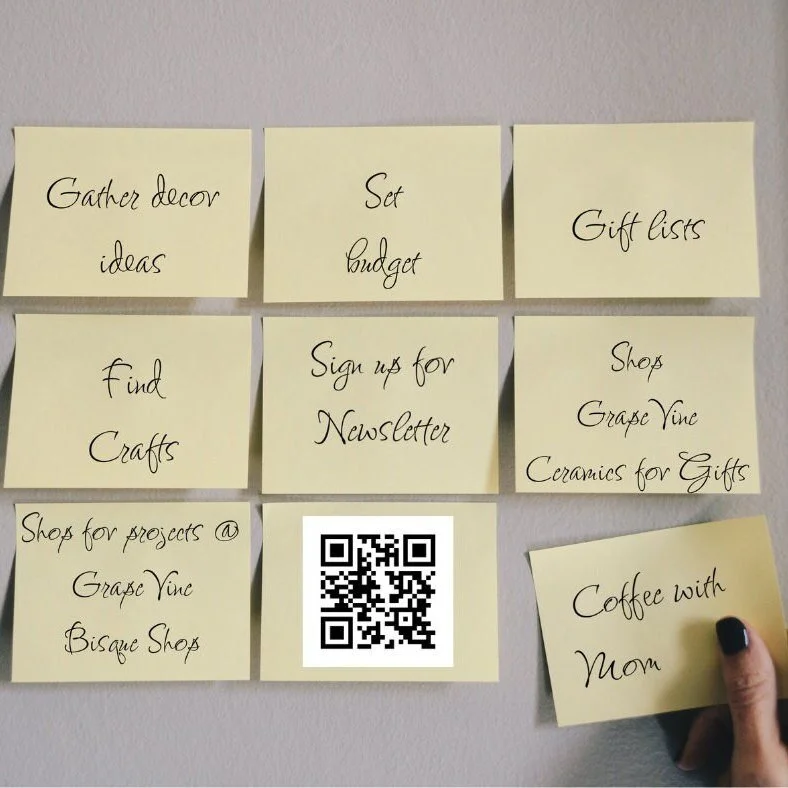 Gather decor
ideas
Set
budget
Gift lists
Find
Crafts
Sign up for
Newsletter
Shop
Grape Vine
Ceramics for Gifts
Shop for projects @
Grape Vine
Bisque Shop
Coffee with
Mom